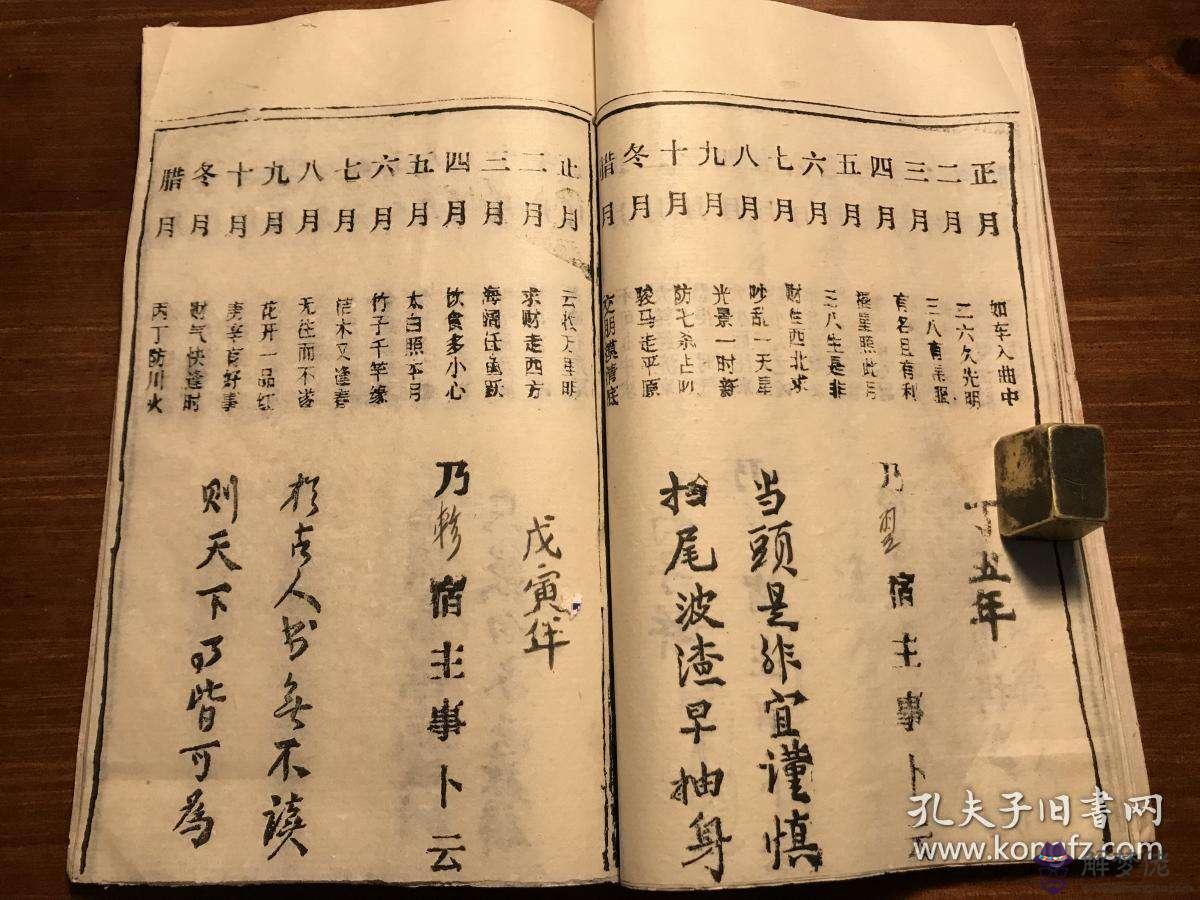 正月 如车入曲中
二月 二六久先明
三月 三八有
四月 有名且有利
五月 星照此月
六月 三八生是非
七月 财在西北求
八月 吵乱一天星
九月 光景一时新
十月 防七杀占
冬月 骏马走平原
腊月 底
丁丑年
乃 宿主事卜云
当頭是非宜謹慎
尾波渣早抽身
正月 云 万里明
二月 求财走西方
三月 海阔任鱼跃
四月 饮食多小心
五月 太白照本月
六月 竹子千竿绿
七月 枯木又逢春
八月 无往而不遂
九月 花开一品红
十月 庚辛有好事
冬月 财气快逢时
腊月 丙丁防川火
戊寅年
乃軫宿主事卜云
古人書無不讀
则天下乃皆可為
孔夫子旧書网
www.kongfz.com
解梦佬